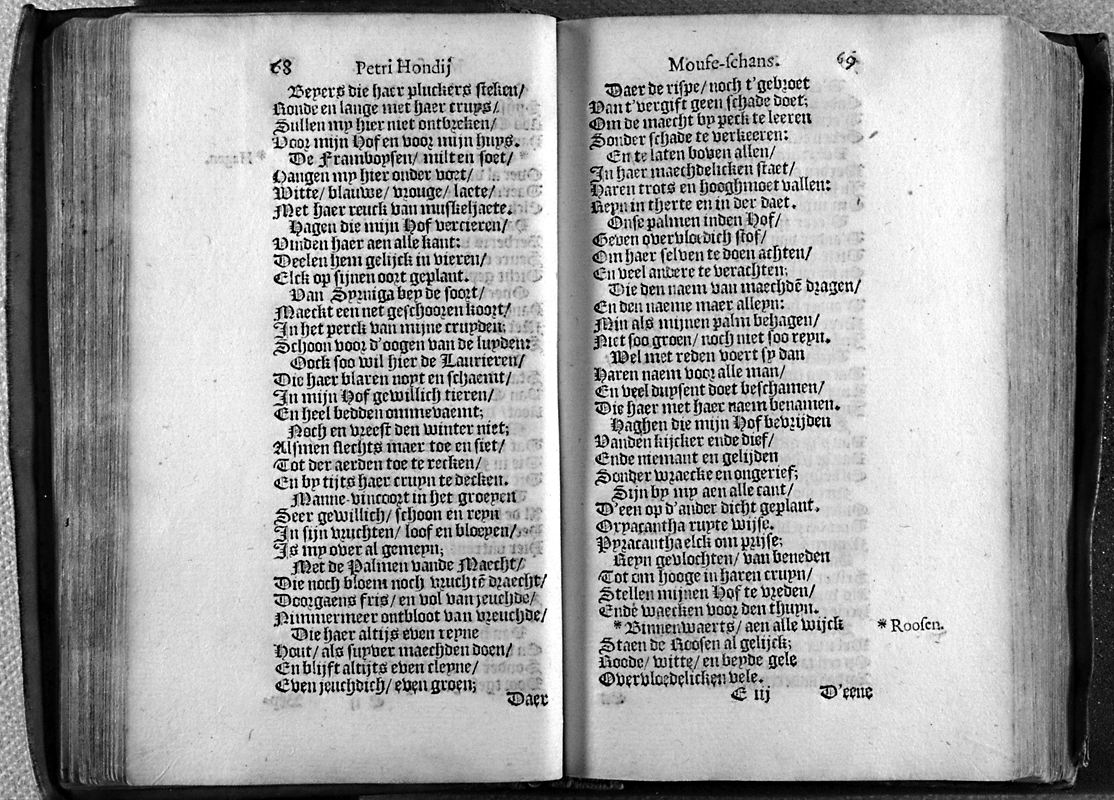 68 Petri Hondij
Beyers die haer pluckers steken/
Ronde en lange met haer truys/
Sullen my hier niet ontbreken/
Voor mijn Hof en voor mijn huys.
De Framboysen/ milt en soet/
Hangen my hier onder voet/
Witte/ blauwe/ vrouge/ laete/
Met haer reuck van muskeljaete.
Hagen die mijn Hof vercieren/
Vinden haer aen alle kant:
Deelen hem gelijck in vieren/
Elck op sijnen oort geplant.
Van Syringa bey de soort/
Maeckt een net geschooren koort/
In het perck van mijne cruyden;
Schoon voor d'oogen van de luyden:
Oock soo wil hier de Laurieren/
Die haer blaren noyt en schaemt/
In mijn Hof gewillich tieren/
En heel bedden ommevaemt;
Noch en vreest den winter niet;
Alsmen slechts maer toe en siet/
Tot der aerden toe te recken/
En by tijts haer cruyn te decken.
Manne-vincoort in het groeyen
Seer gewillich/ schoon en reyn
In sijn vruchten/ loof en bloeyen/
Is my over al gemeyn;
Met de Palmen vande Maecht/
Die noch bloem noch vruchtē draecht/
Doorgaens fris/ en vol van jeuchde/
Nimmermeer ontbloot van vreuchde/
Die haer altijs even reyne
Hout/ als suyver maechden doen/
En blijft altijts even cleyne/
Even jeuchdich/ even groen;
Daer
Mouse-schans. 69
Daer de rispe/ noch t'gebroet
Van t'vergift geen schade doet;
Om de maecht by peck te leeren
Sonder schade te verkeeren:
En te laten boven allen/
In haer maechdelicken staet/
Haren trots en hooghmoet vallen:
Reyn in therte en in der daet.
Onse palmen inden Hof/
Geven overvloedich stof/
Om haer selven te doen achten/
En veel andere te verachten;
Die den naem van maechdē dragen/
En den naeme maer alleyn:
Min als mijnen palm behagen/
Niet soo groen/ noch niet soo reyn.
Wel met reden voert sy dan
Haren naem voor alle man/
En veel duysent doet beschamen/
Die haer met haer naem benamen.
Haghen die mijn Hof bevrijden
Vanden kijcker ende dief/
Ende niemant en gelijden
Sonder wraecke en ongerief;
Sijn by my aen alle cant/
D'een op d'ander dicht geplant.
Oxyacantha ruyte wijse.
Pyracantha elck om prijse;
Reyn gevlochten/ van beneden
Tot om hooge in haren cruyn/
Stellen mijnen Hof te vreden/
Ende waecken voor den thuyn.
* Binnenwaerts/ aen alle wijck * Roosen.
Staen de Roosen al gelijck;
Roode/ witte/ en beyde gele
Overvloedelicken vele.
E iij D'eene